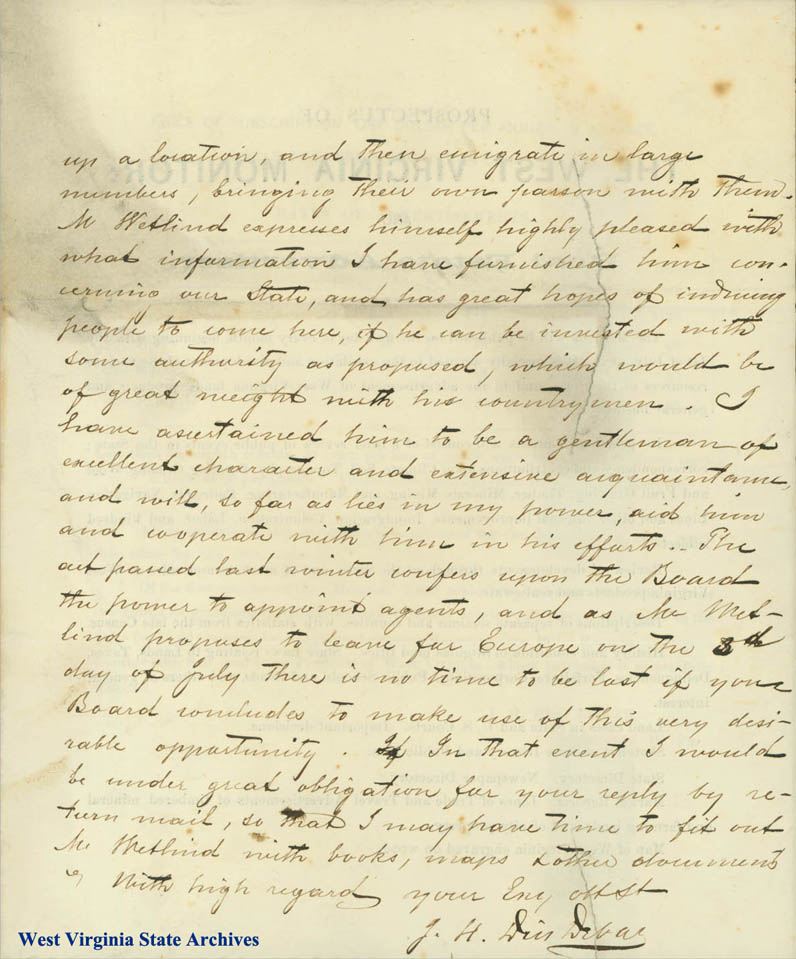 up a location, and then emigrate in large
numbers, bringing their own parson with them.
Mr Wetlind expresses himself highly pleased with
what information I have furnished him con-
cerning our State, and has great hopes of inducing
people to come here, if he can be invested with
some authority as proposed, which would be
of great weight with his countrymen. I
have ascertained him to be a gentleman of
excellent character and extensive acquaintance,
and will, so far as lies in my power, aid him
and cooperate with him in his efforts. The
act passed last winter confers upon the Board
the power to appoint agents, and as Mr Wet-
lind proposes to leave for Europe on the 3d
day of July there is no time to be lost if your
Board concludes to make use of this very desi-
rable opportunity. In that event I would
be under great obligation for your reply by re-
turn mail, so that I may have time to fit out
Mr Wetlind with books, maps & other documents
With high regard your
J. H. Diss Debar
PROSPECTUS OF
THE WEST VIRGINIA MONITOR
West Virginia State Archives